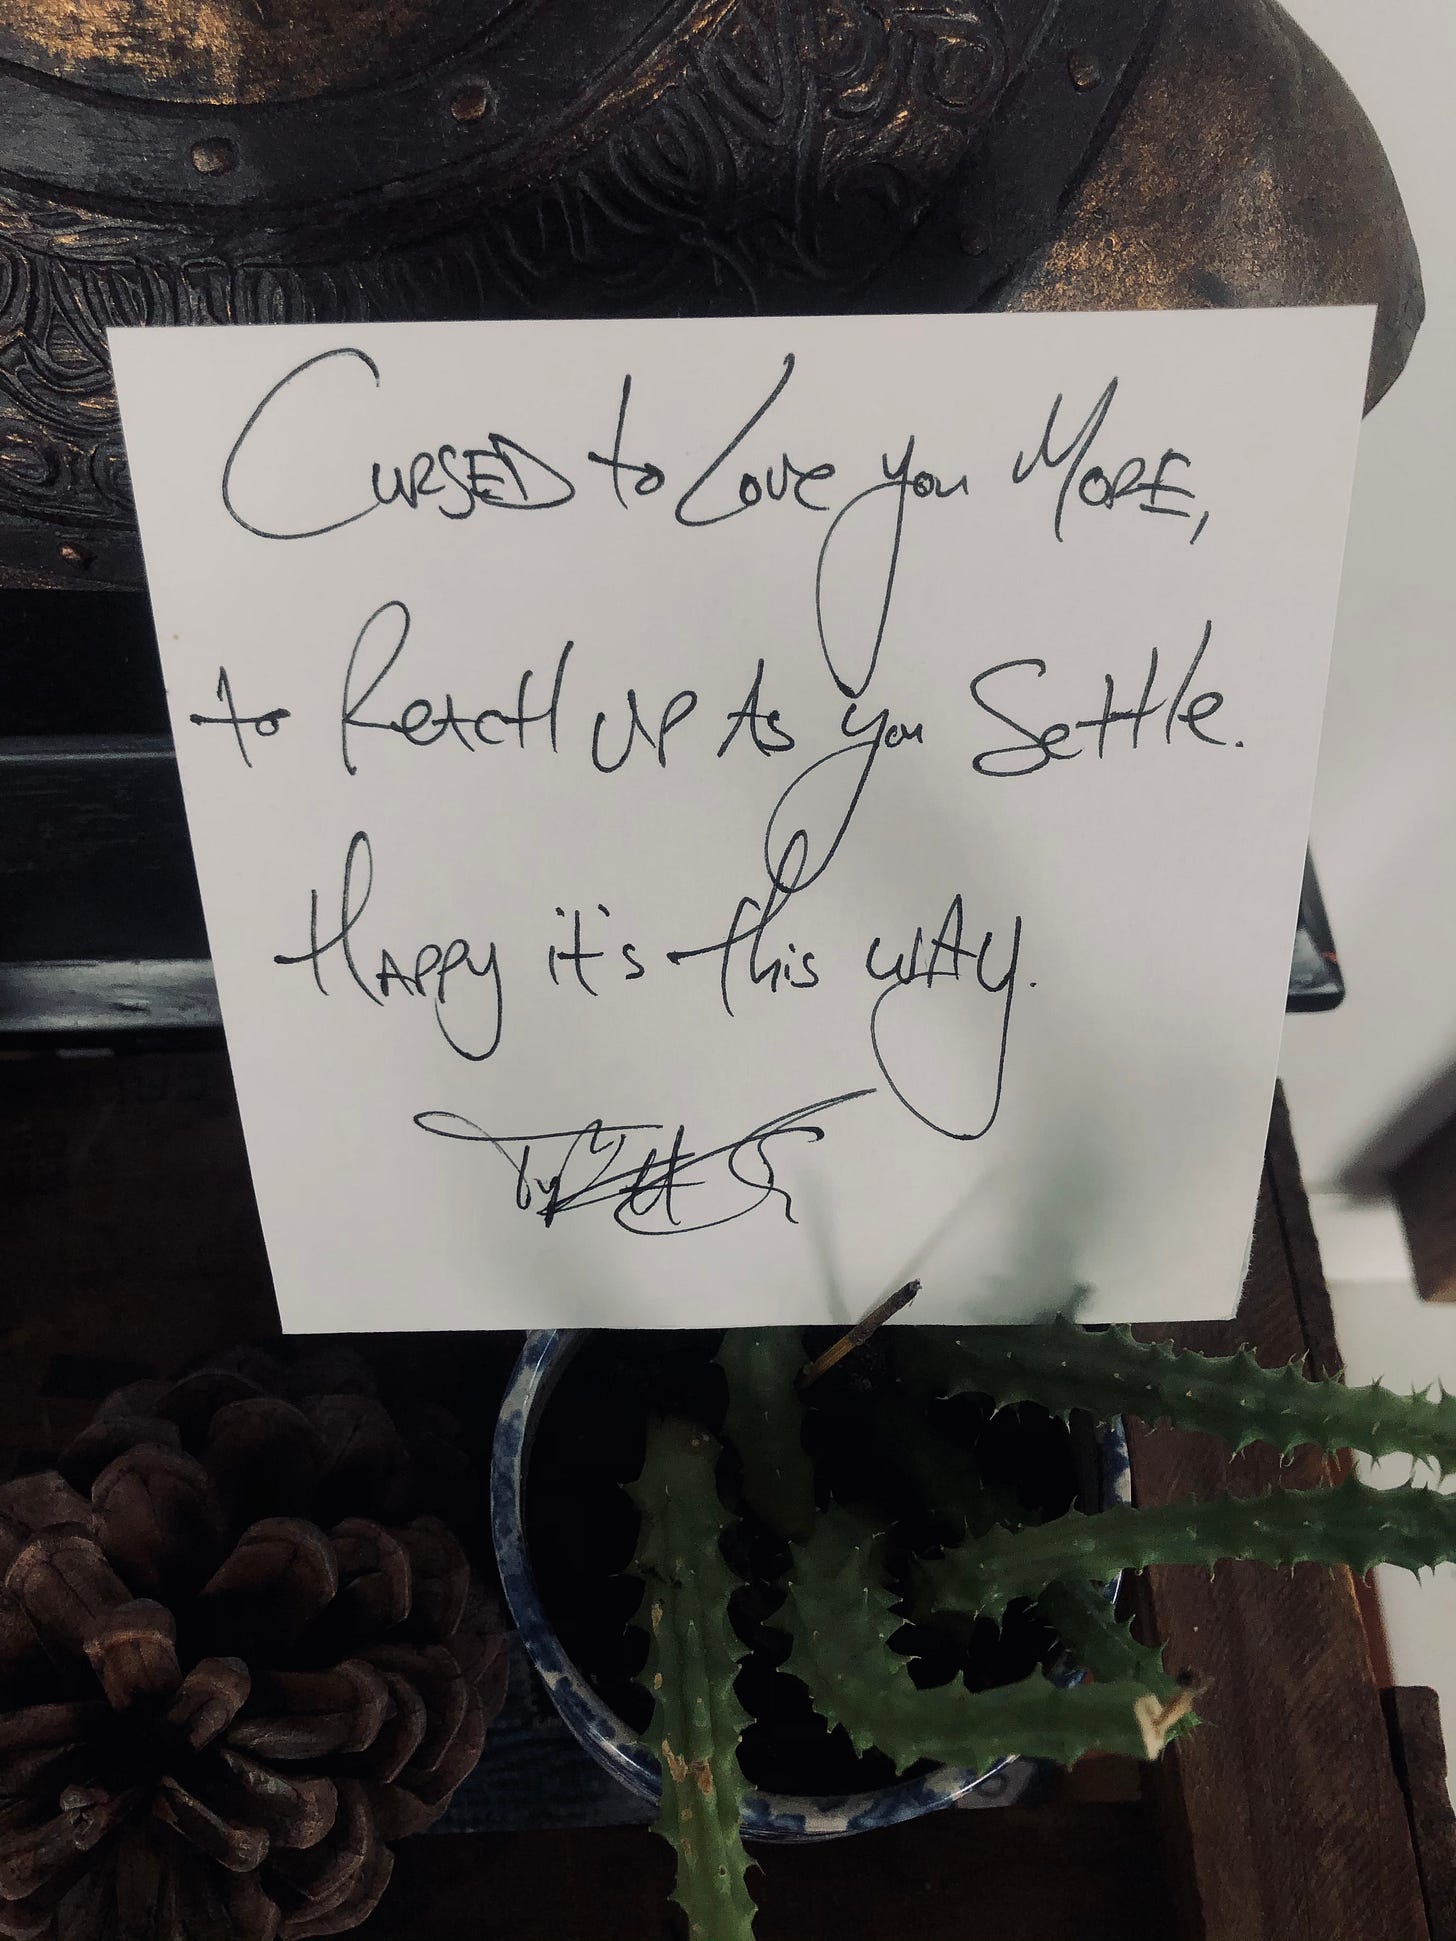 CURSED to Love you MORE,
to ReACH UP As you Settle.
HAPPY it's this wAy.